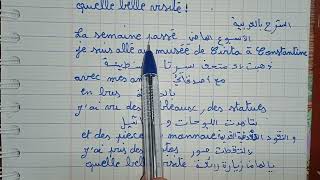 quelle belle visite !
الشرح بالعربية
La semaine passé
الأسبوع الماضي
je suis allé au musée de Cirta à Constantine
ذهبت الى متحف سيرتا
avec mes am
مع أصدقائي
en bus
بالحافلة
j'ai vu des tableaux, des statues
شاهدت اللوحات و
et des pièces monnaie
و النقود
j'ai pris des
والتقطت صور
quelle belle visite
يالها من زيارة رائعة